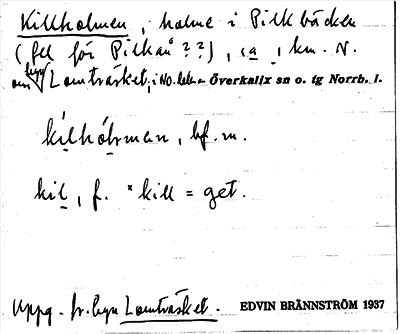 Killholmen, holme i Pilkbäcken
(fel för Pilkån??), ca 1 km. N.
om byn Lomträsket, i NO. delen Överkalix sn o. tg Norrb. l.
kìlhólman, bf. m.
kil, f. *kill = get.
Uppg. fr. byn Lomträsket. EDVIN BRÄNNSTRÖM 1937